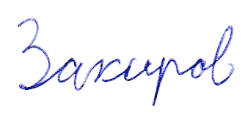 Закиров